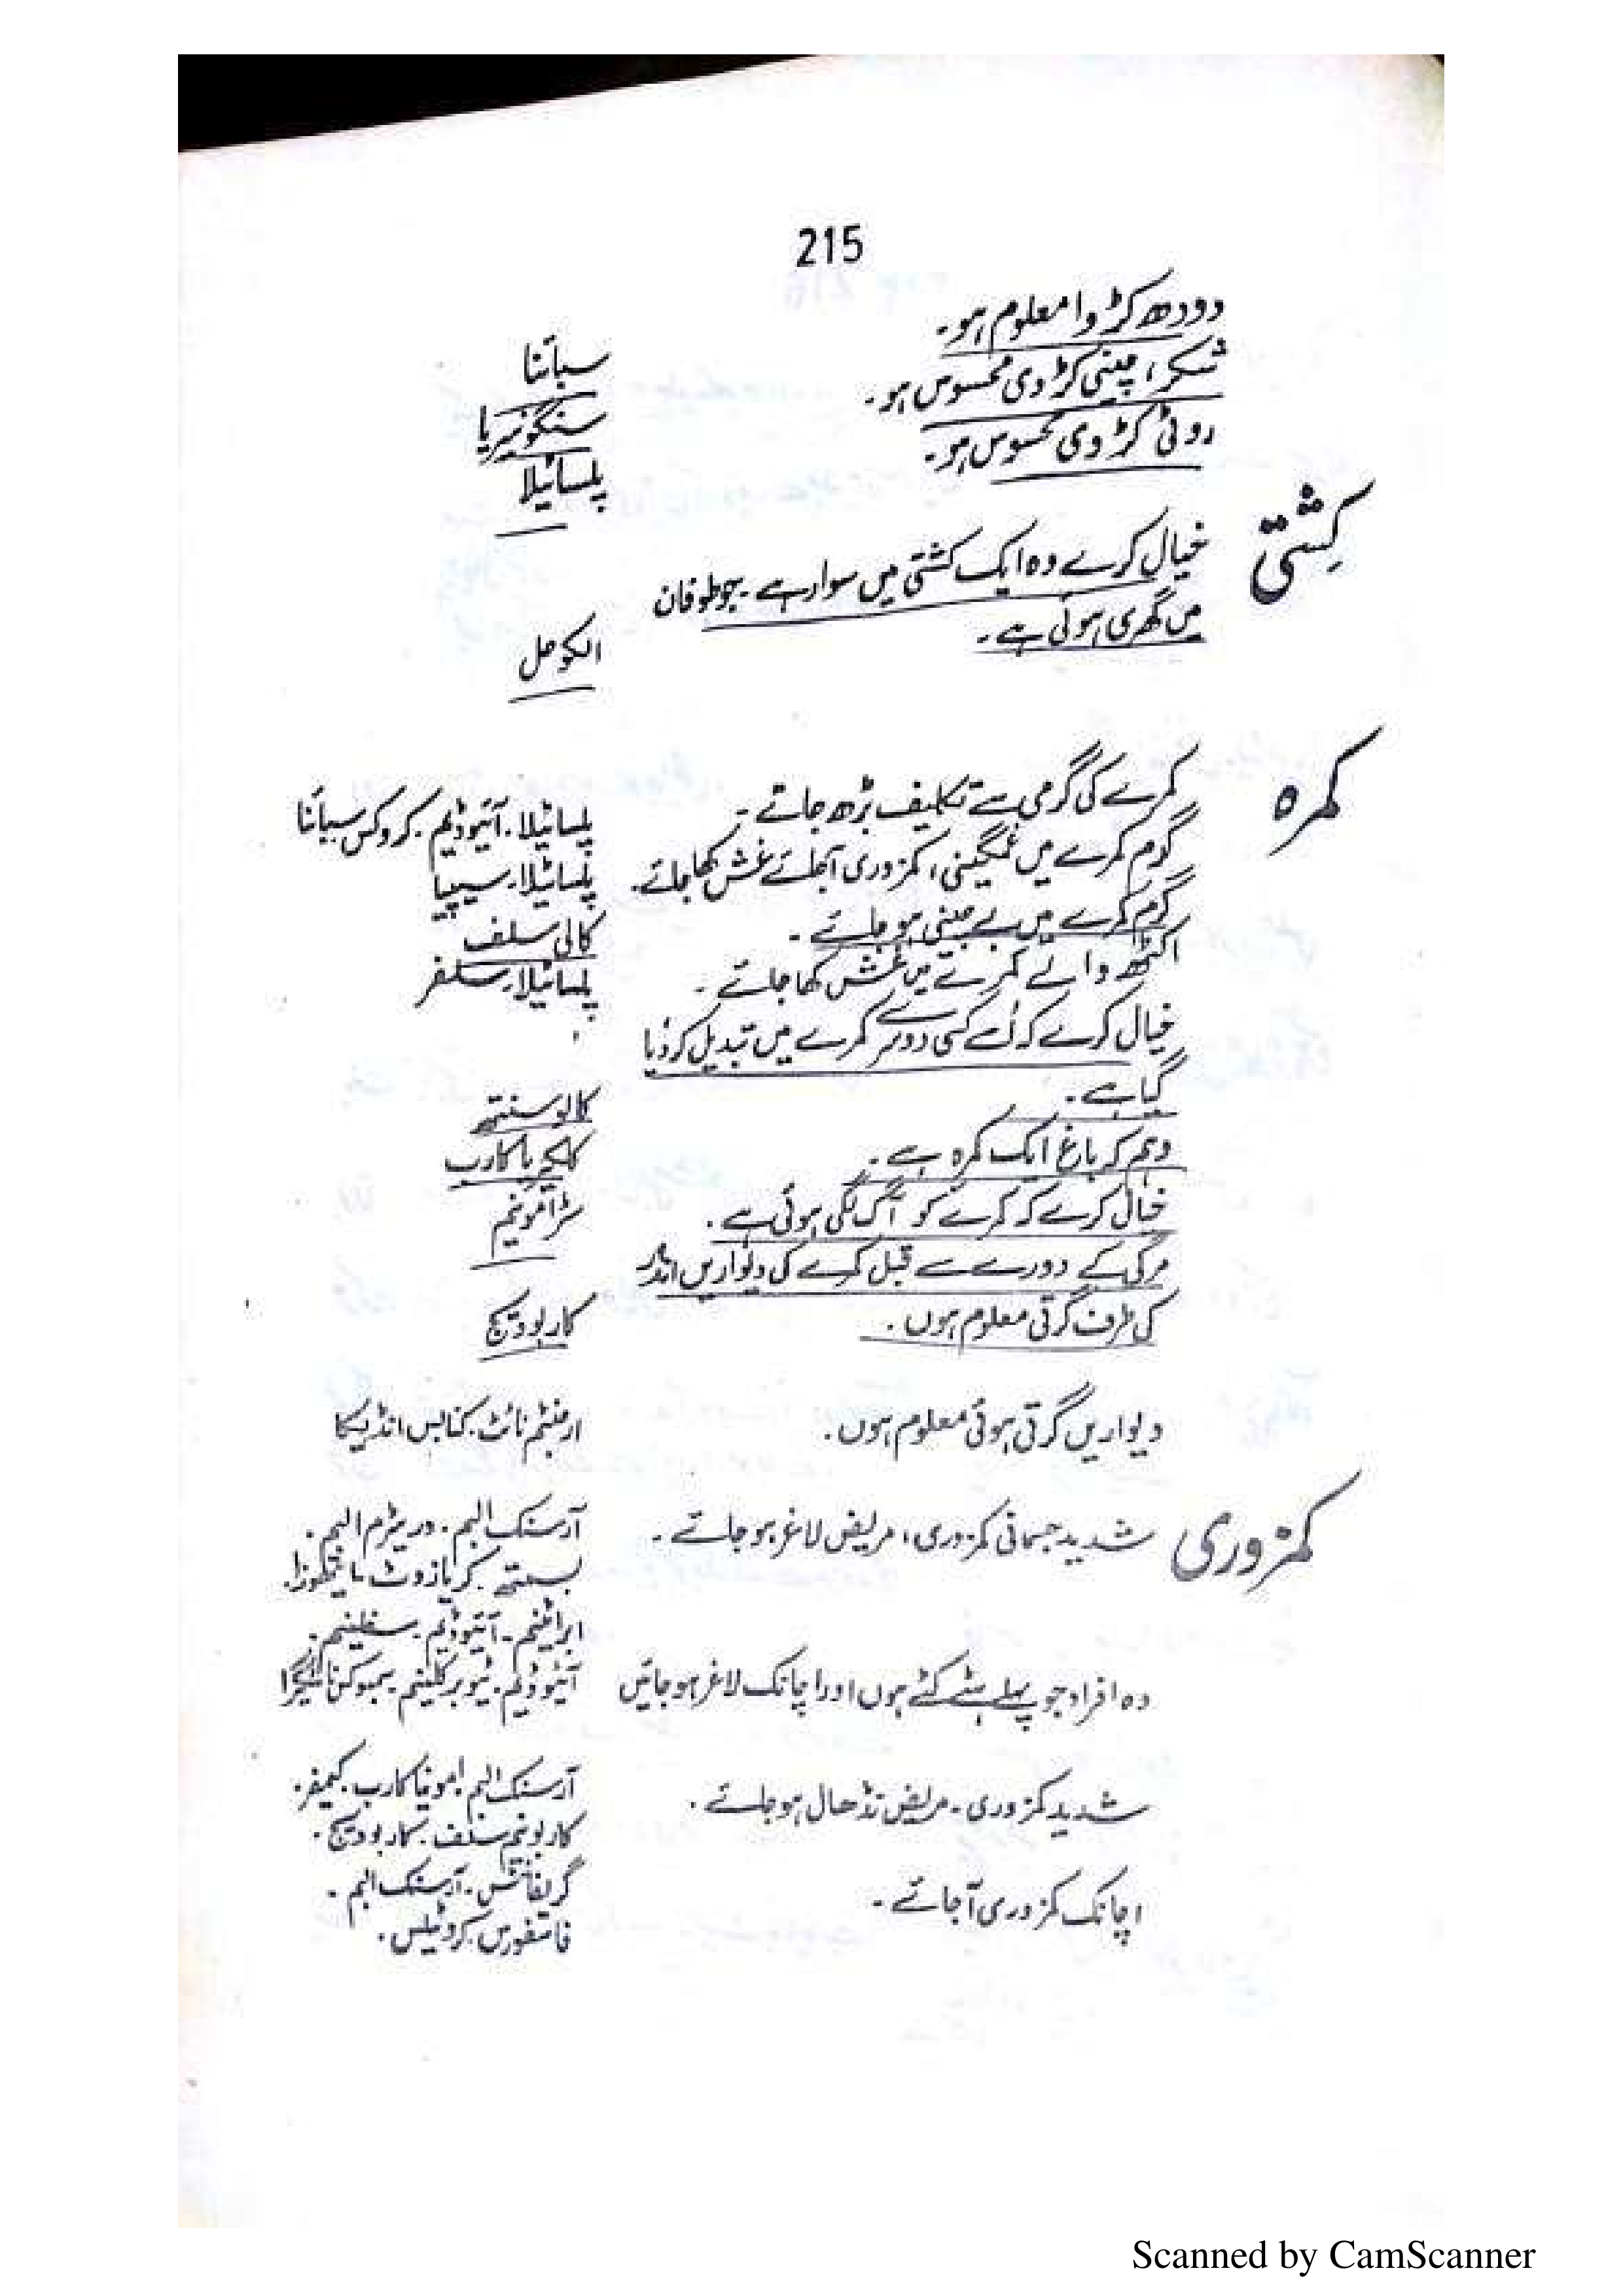 215
دودھ کڑوا معلوم ہو۔ سبائنا
شکر، چینی کڑوی محسوس ہو۔ سنگونیریا
روٹی کڑوی محسوس ہو۔ پلساٹیلا
کِشتی
خیال کرے وہ ایک کشتی میں سوار ہے۔ جو طوفان
میں گھری ہوئی ہے۔ الکوحل
کمرہ
کمرے کی گرمی سے تکلیف بڑھ جائے۔ پلساٹیلا۔ آئیوڈیم۔ کروکس سبائنا
گرم کمرے میں غمگینی، کمزوری آجائے غش کھا جائے۔ پلساٹیلا۔ سیپیا
گرم کمرے میں بے چینی ہو جائے۔ کالی سلف
اکٹھ والے کمرے میں غش کھا جائے۔ پلساٹیلا۔ سلفر
خیال کرے کہ اُسے کسی دوسرے کمرے میں تبدیل کر دیا
گیا ہے۔ کالوسنتھ
وہم کہ باغ ایک کمرہ ہے۔ کلکیریا کارب
خیال کرے کہ کمرے کو آگ لگی ہوئی ہے۔ سڑامونیم
مرگی کے دورے سے قبل کمرے کی دیواریں اندر
کی طرف گرتی معلوم ہوں۔ کاربوویج
دیواریں گرتی ہوئی معلوم ہوں۔ ارجنٹم نائٹ۔ کنابس انڈیکا
کمزوری
شدید جسمانی کمزوری، مریض لاغر ہو جائے۔ آرسنک البم۔ وریٹرم البم۔
بسمتھ۔ کریازوٹ۔
ابراٹینم۔ آئیوڈیم۔
وہ افراد جو پہلے ہٹے کٹے ہوں اور اچانک لاغر ہو جائیں آئیوڈیم۔ ٹیوبرکلینم۔ سمبوکس نائیگرا
شدید کمزوری۔ مریض نڈھال ہو جائے۔ آرسنک البم۔ امونیا کارب۔ کیمفر۔
کاربونیم سلف۔ کاربوویج۔
اچانک کمزوری آجائے۔ گریفائٹس۔ آرسنک البم۔
فاسفورس۔ کروٹیلس۔
Scanned by CamScanner